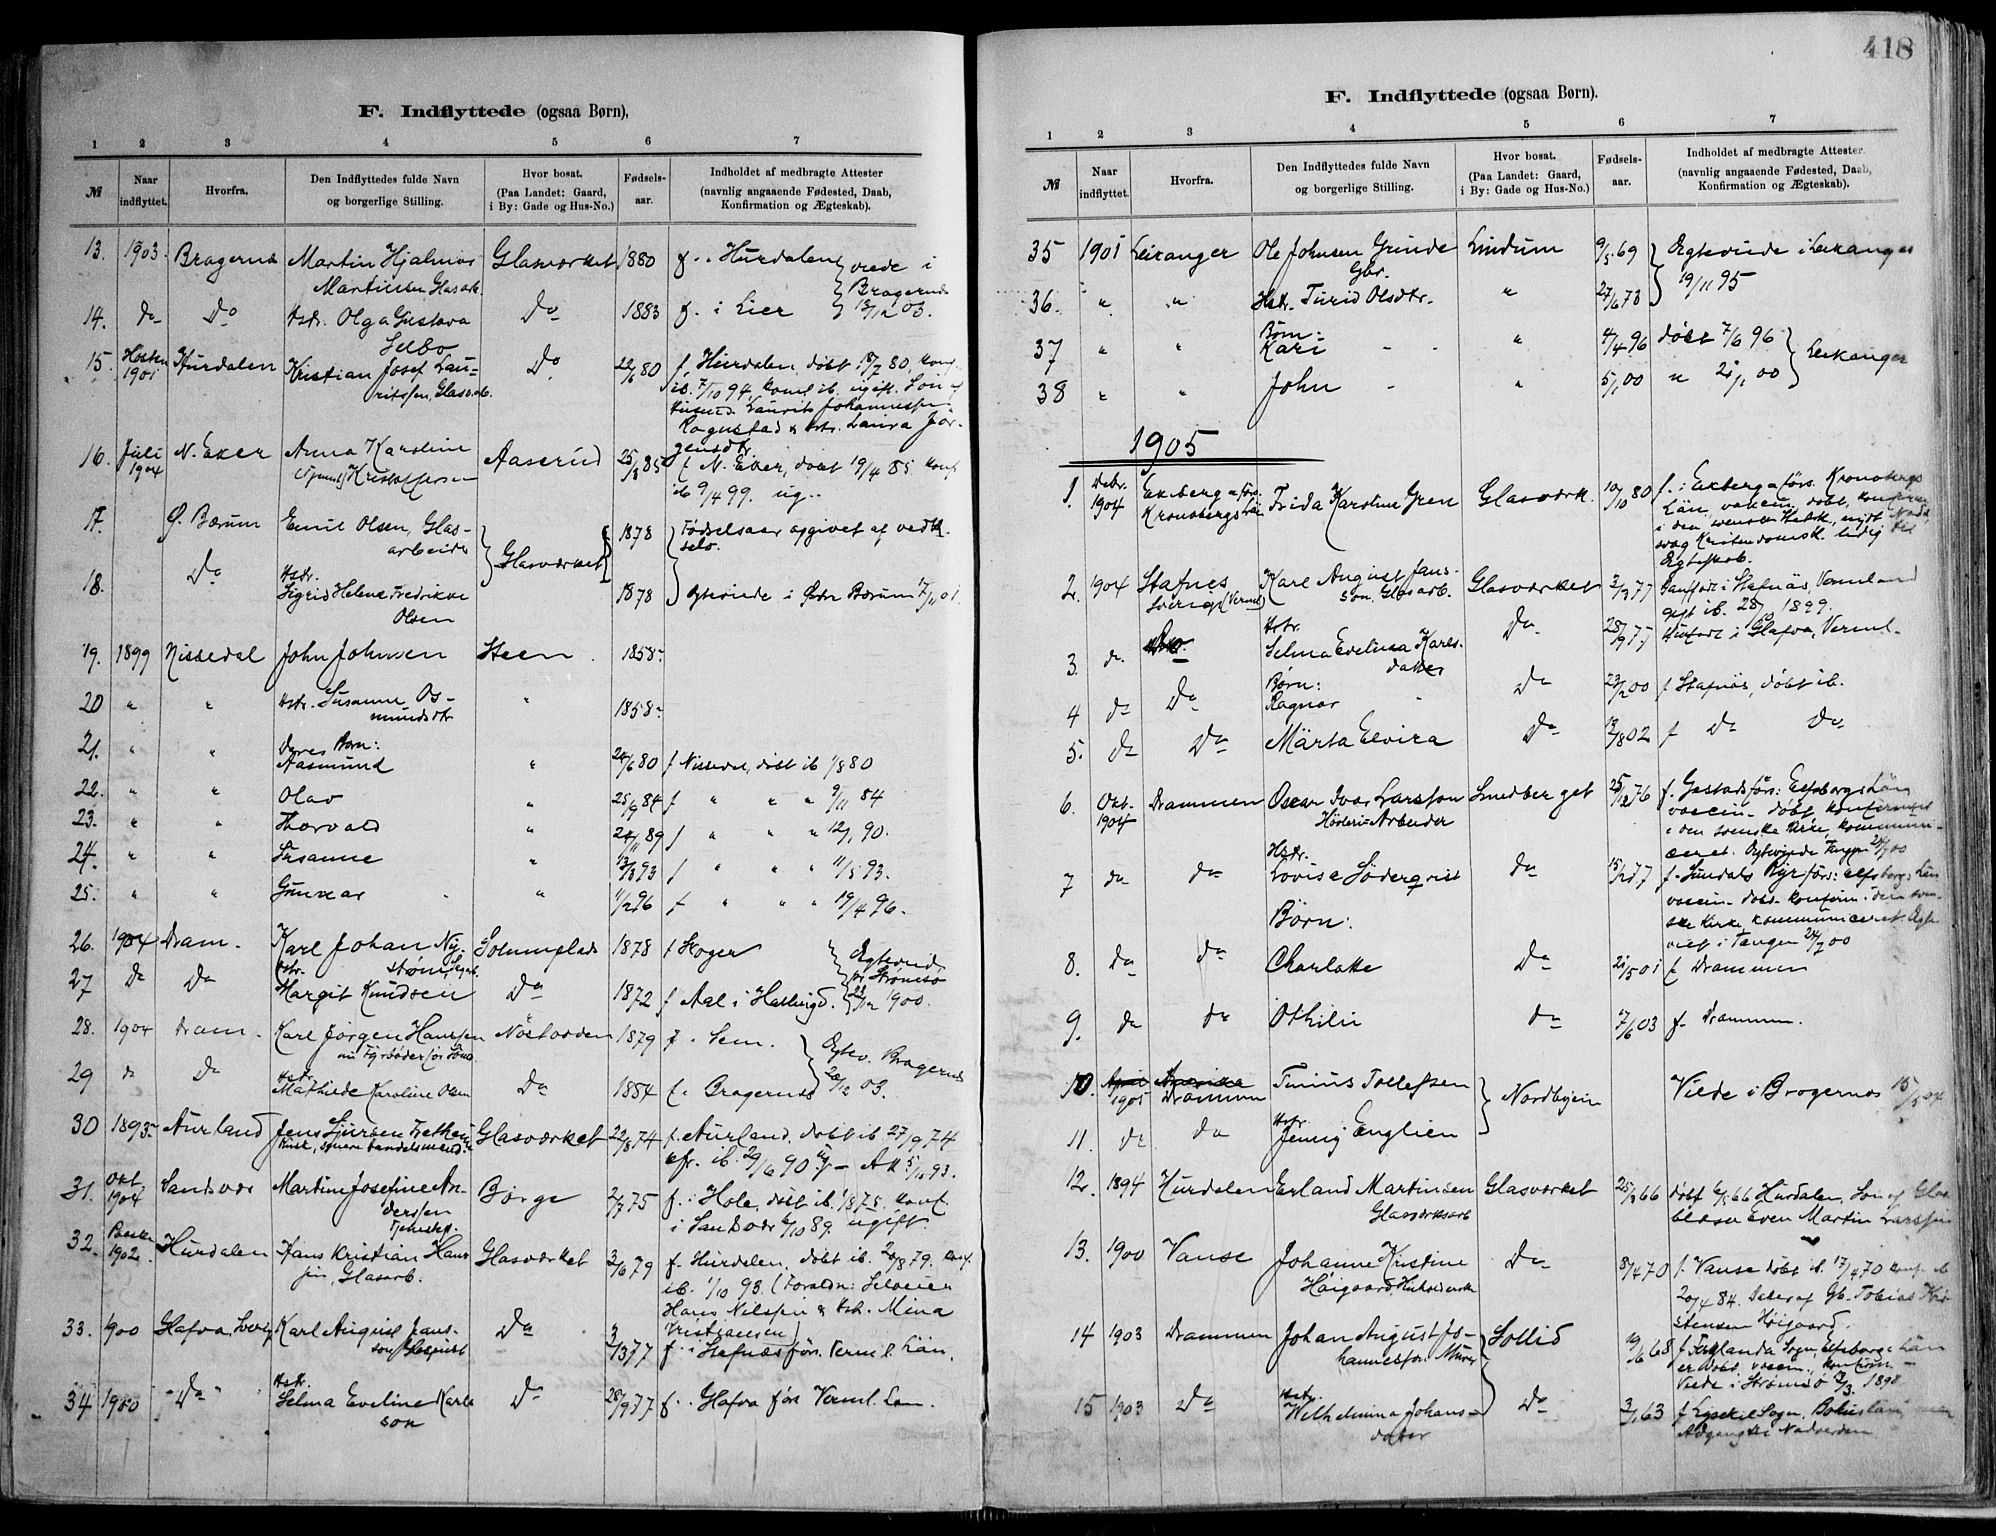 F. Indflyttede (ogsaa Børn),
1 2 3 4 5 6 7
№ Naar indflyttet. Hvorfra. Den Indflyttedes fulde Navn og borgerlige Stilling. Hvor bosat. (Paa Landet: Gaard, i By: Gade og Hus-No.) Fødselsaar. Indholdet af medbragte Attester (navnlig angaaende Fødested, Daab, Konfirmation og Ægteskab).
13. 1903 Bragernæs Martin Hjalmar Glasværket 1880 f. i Hurdalen viede i
Martinsen Glasarb. Bragernæs
14. do Do Hstr. Olga Gustava Do 1883 f. i Lier 13/12 03.
Selbo
15 Høsten Hurdalen Kristian Josef Lau- Do 22/6 80 f. Hurdalen, døbt 18/7 80, konf.
1901 ritssen, Glasarb. ib. 7/10 94, ib. ugift. Søn af
Husmd. Laurits Johannessen
Rognstad & Hstr. Laura Jør-
gensdtr.
16. Juli N. Eker Anna Karoline Aaserud 25/3 85 f. N. Eker, døbt 19/4 85 konf
1904 Kristoffersen ib 9/4 99. ug.
17. Ø. Bærum Emil Olsen, Glas- 1878 Fødselsaar opgivet af vedk.
arbeider Glasværket selv.
18. Do Hstr. Sigrid Helene Fredrikke 1878 Ægteviede i Østre Bærum 17/11 01.
Olsen
19. 1899 Nissedal John Johnsen Steen 1858
20 " " Hstr. Susanne Os- " 1858
mundsdtr
21. " " Deres Børn:
Aasmund " 24/6 80 f Nissedal, døbt ib 1/8 80
22. " " Olav " 25/9 84 f " " " 9/11 84
23. " " Thorvald " 24/11 89 f " " " 12/1 90.
24. " " Susanne " 13/3 93 f " " " 11/5 93.
25. " " Gunnar " 11/2 96 f " " " 19/4 96.
26. 1904 Dram. Karl Johan Ny- 1878 f Skoger Ægteviede
strøm
27 Do Do Hstr. Margit Knudsen Do 1872 f Aal i Hallingd. Strømsø 1900.
28. 1904 Dram. Karl Jørgen Hanssen Nøstodden 1879 f. Sem. Ægtev. Bragernæs
29 do Do Hstr. Mathilde Karoline Olsen Do 1884 f. Bragernæs 26/12 03.
30 1893 Aurland Jens Sjursen Fretheim Glasværket 22/8 74 f. Aurland, døbt ib. 27/9 74
kfr. ib. 29/6 90 ug — Att 5/10 93.
31. Okt. Sandsvær Martine Josefine An- Børge 2/7 75 f. i Hole, døbt ib. 1/8 75. konf
1904 derssen i Sandsvær 6/10 89. ugift.
Tjenestepi.
32. Paaske Hurdalen Hans Kristian Hans- Glasværket 3/6 79 f. Hurdalen, døbt ib. 20/8 79, konf.
1902 sen, Glasarb. ib. 1/10 93. (Foræld:
Hans Nilsen & Hstr. Mina
Kristiansen)
33. 900 Glafva, Sverig Karl August Jans- Do 3/3 77 f. i Stafnæs förs. Verml. Län.
son
34 1900 Do Hstr. Selma Eveline Karls- Do 28/9 77 f. Glafva förs Verml. Län.
son
418
F. Indflyttede (ogsaa Børn).
1 2 3 4 5 6 7
№ Naar indflyttet. Hvorfra. Den Indflyttedes fulde Navn og borgerlige Stilling. Hvor bosat. (Paa Landet: Gaard, i By: Gade og Hus-No.) Fødselsaar. Indholdet af medbragte Attester (navnlig angaaende Fødested, Daab, Konfirmation og Ægteskab).
35 1901 Leikanger Ole Johnsen Grinde Lindum 9/5 69 Ægteviede i Leikanger
Gbr. 19/11 95
36. " " Hstr. Turid Olsdtr. " 27/6 73
37 " " Børn: Kari " 4/4 96 døbt 7/6 96 Leikanger
38 " " John " 5/1 00 " 21/1 00
1905
1. Debr. Ekeberga förs. Frida Karoline Gren Glasværk. 10/10 80 f. i Ekeberga förs. Kronobergs
1904 Kronobergs län Län, vakcin, døbt, konfirm.
Ægteskab.
2. 1904 Stafnes Karl August Jans- Glasværket 3/3 77 Stafnäs, Vermland
Sverige (Verml) son, Glasarb. gift ib. 28/10 1899.
3. do Hstr. Selma Evelina Karls- Do 28/9 77 Glafva, Verml.
datter
4 do Do Børn: Ragnar Do 23/2 00 f Stafnäs, døbt ib.
5. Do Do Märta Elvira Do 13/8 02 f Do Do
6. Okt. Drammen Oscar Ivar Larsson Smedberget 25/12 76 f. Gestads förs: Elfsborgs Län
1904 Arbeider vaccin. døbt, konfirmeret
i den svenske Kirke, kommuni-
ceret. Ægteviede Tangen 24/7 00
7 do do Hstr. Lovise Söderqvist do 15/12 77 f. Sundals Ryr förs: Elfsborgs Län
vaccin. døbt. konfirm. i den sven-
ske Kirke kommuniceret Ægte-
viet i Tangen 24/7 00
Børn:
8. Do do Charlotte Do 21/5 01 f. Drammen
9. do do Othilie do 7/6 03 f. Drammen.
10. April Amerika Tinius Tollefsen Nordbyen Viede i Bragernæs 15/5 04
1905 Drammen
11. do do Hstr. Jenny Englien
12. 1894 Hurdalen Erland Martinsen Glasværket 25/3 66 døbt 6/5 66 Hurdalen, Søn af Glas-
Glasværksarb blæser Even Martin Larssen
13. 1900 Vanse Johanne Kristine Do 8/4 70 f. Vanse døbt ib. 17/4 70 konf. ib
Høigaard 20/4 84. Datter af Gb. Tobias Kri-
stensen Høigaard.
14 1903 Drammen Johan August Jo- Sollid 19/6 68 f. Sogn, Elfsborgs Län
hannesson Murer er døbt, vaccin., konfirm. —
Viede i Strømsø 1898
15 1903 Do Hstr. Wilhelmina Johans- Do 3/1 63 f Lysekil Sogn, Bohuslän
datter Adgang til Nadverden